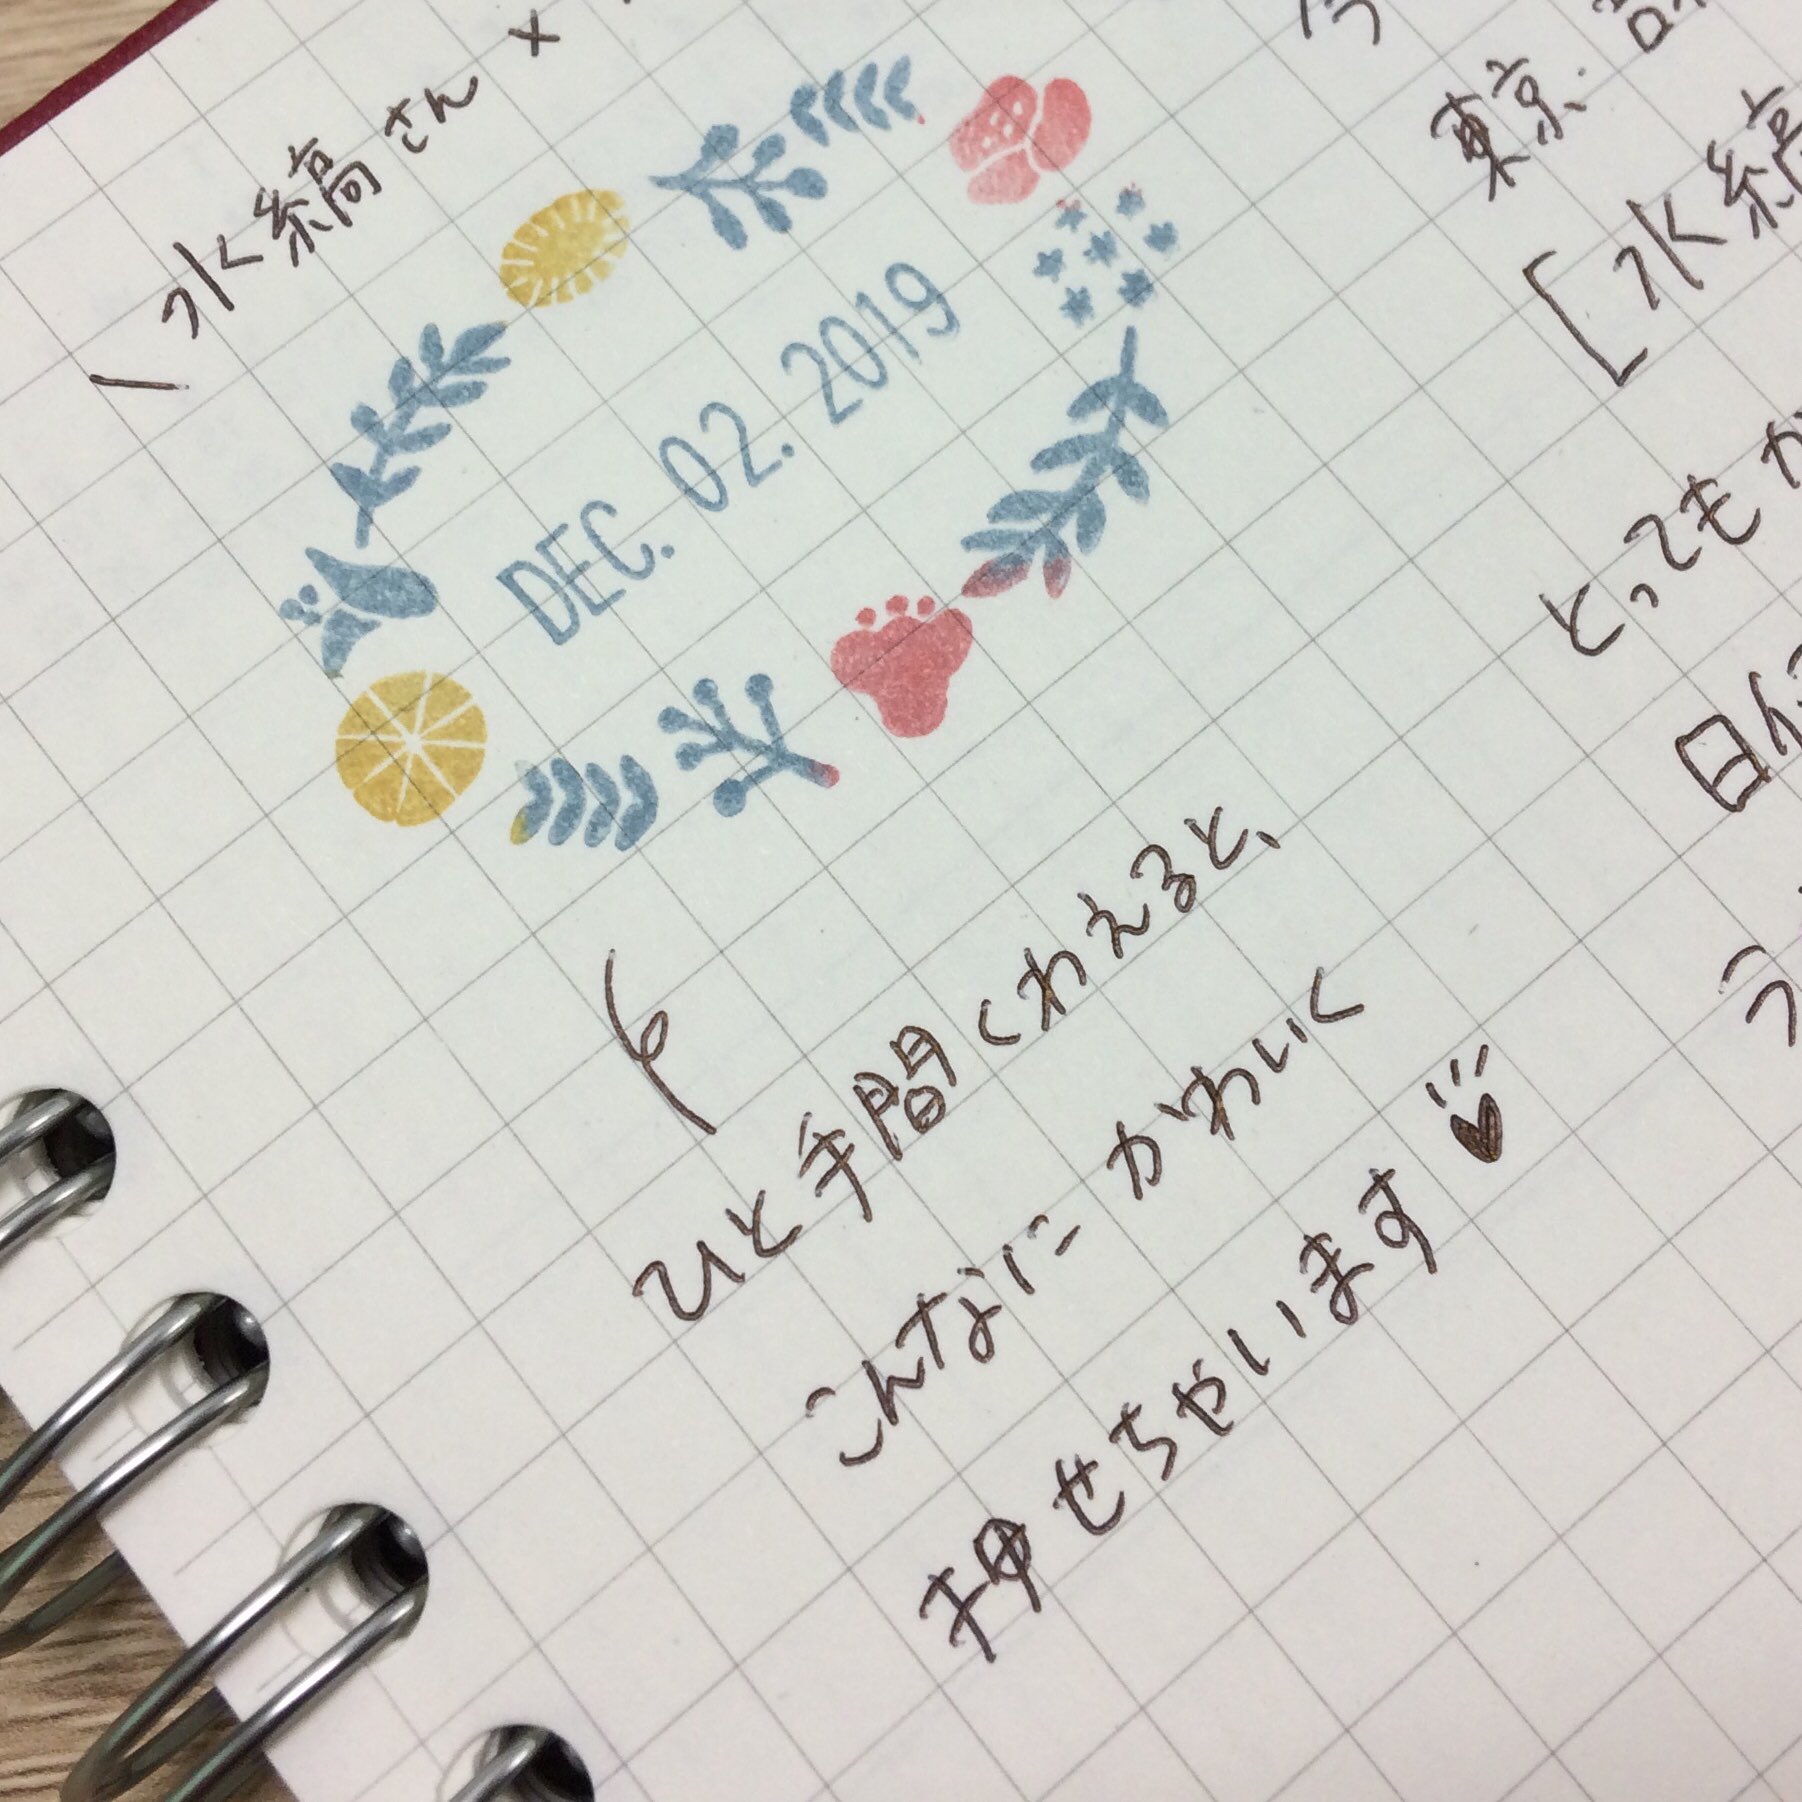 水縞さん ×
DEC. 02. 2019
ひと手間くわえると、
こんなに かわいく
押せちゃいます
東京.
[水縞
とっても